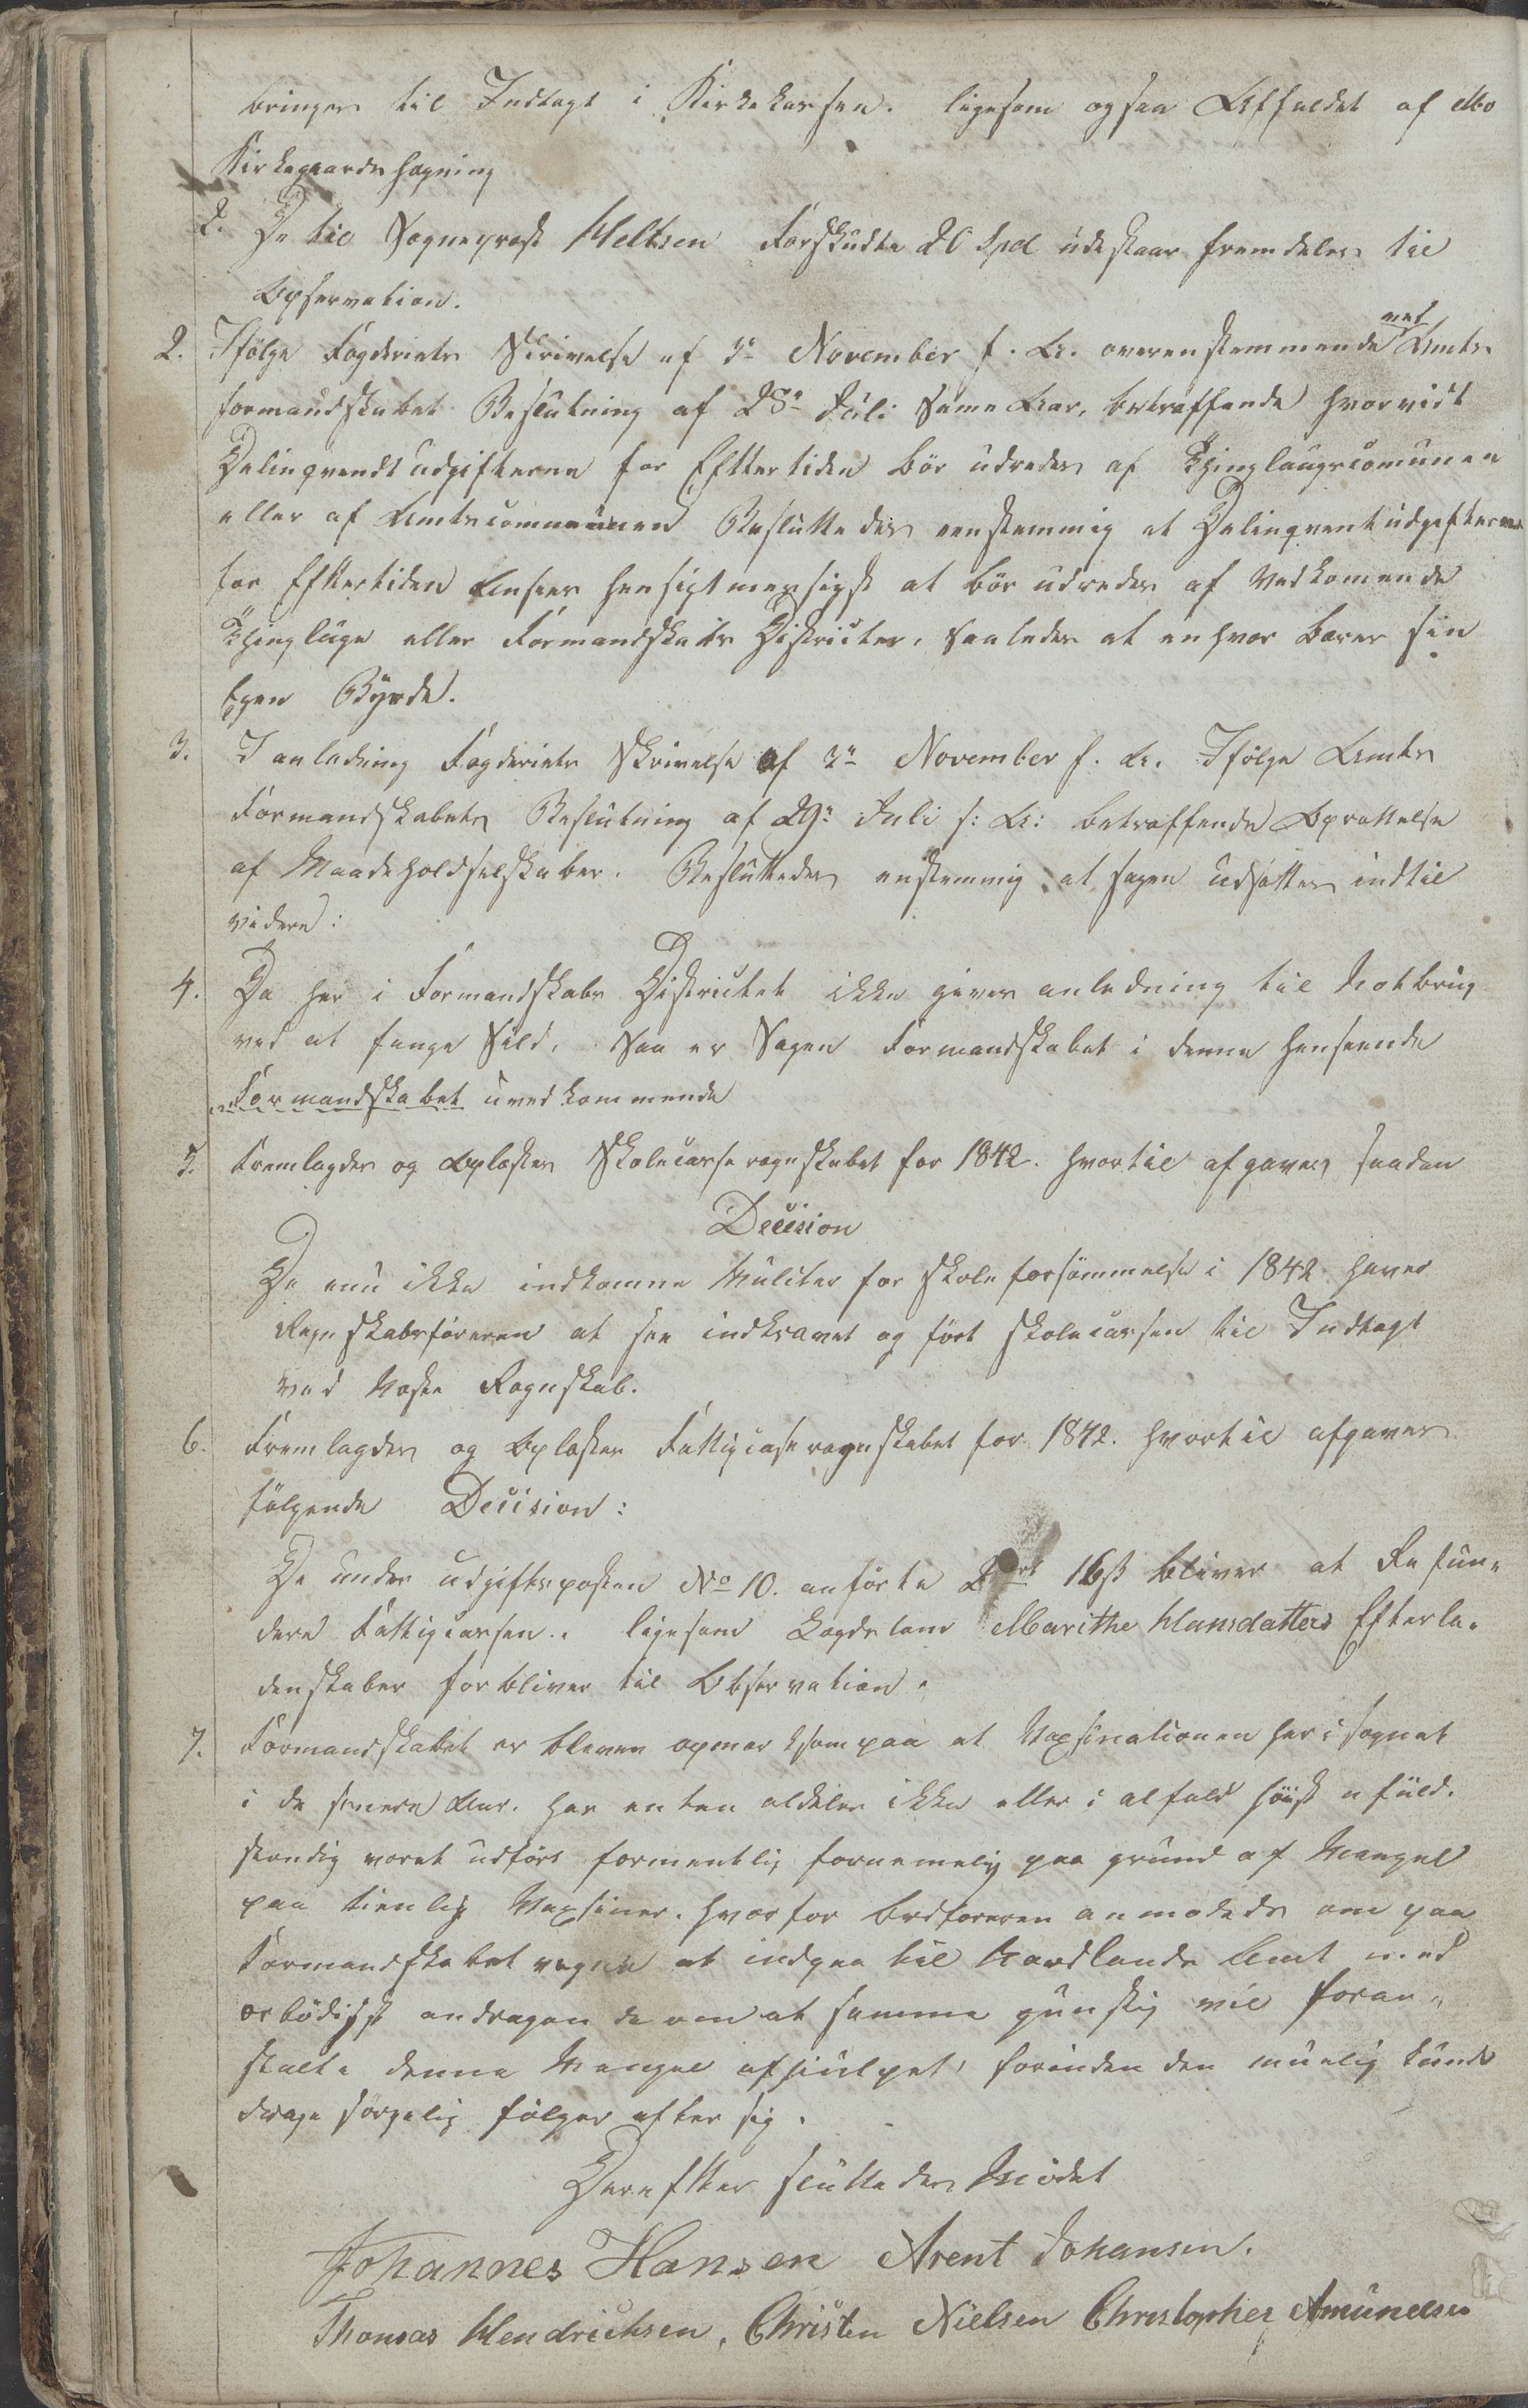 bringes til Indtægt i Kirkekassen. ligesom ogsaa Affaldet af Mo
Kirkegaards hægning
2. De til Sogneprest Heltzen Forskudte 20 Spd udestaar fremdeles til
Opservation.
2. Ifølge Fogderiets Skrivelse af 3die November f. A. overenstemmende med Amts
formandskabet Beslutning af 28de Juli samme Aar, betræffende hvorvidt
Delinqvendtudgifterne for Efttertiden bör udredes af Thinglaugscomunen
eller af Amtscommunen Besluttedes eenstemmig at Delinqventudgifterne
for Efttertiden Ansees hensigtmæssigst at bör udredes af Vedkomende
Thinglage eller Formandskabs Districter, saaledes at enhver bærer sin
Egen Byrde.
3. I anledning Fogderiets Skrivelse af 3die November f. A. Ifølge Amts
Formandskabets Beslutning af 29de Juli s: A: betræffende Oprættelse
af Maadeholdselskaber. Besluttedes enstemmig at sagen udsættes indtil
videre:
4. Da her i Formandskabs Districtet ikke gives anledning til Notbrug
ved at fange Sild, saa er Sagen Formandskabet i denne henseende
Formandskabet uvedkommende
5. Fremlagdes og Oplæstes Skolecasseregnskabet for 1842. hvortil afgaves saadan
Decision
De enu ikke indkomne Mulcter for skoleforsömmelse i 1842 haver
Regnskabsföreren at see indkrævet og fört skolecassen til Indtægt
ved Næste Regnskab.
6. Fremlagdes og Oplæstes Fattigcasseregnskabet for 1842. hvortil afgaves
følgende Decision:
De under udgiftsposten No 10. anförte 2 ort 16 ß bliver at Refun„
dere Fattigcassen. ligesom Lægdslem Marithe Hansdatters Efterla„
denskaber forbliver til Observation.
7. Formandskabet er bleven opmærksom paa at Vaxsinationen her i sognet
i de senere Aar. har enten aldeles ikke eller i alfald höist ufuld„
stændig været udfört formentlig fornemelig paa grund af Mangel
paa tienlig Vaxsiner. hvorfor Ordföreren anmodedes om paa
Formandskabet vegne at indgaa til Nordlands Amt med
ærbödigst andragende om at samme gunstig vil foran„
stalte denne Mangel afhiulpet, forinden den muelig kunde
drage sörgelig fölger efter sig.
Derefter sluttedes Mödet
Johannes Hansen Arent Johansen.
Thomas Hendrichsen, Christen Nielsen Christopher Amundsen